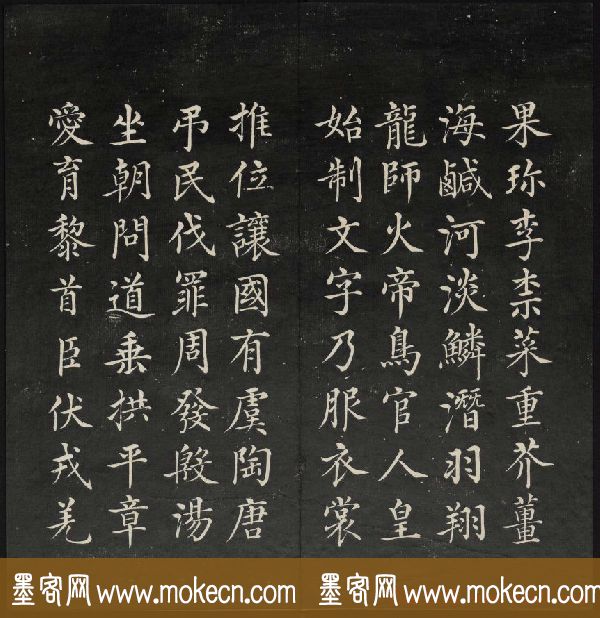 果珎李柰菜重芥薑
海鹹河淡鱗潛羽翔
龍師火帝鳥官人皇
始制文字乃服衣裳
推位讓國有虞陶唐
弔民伐罪周發殷湯
坐朝問道垂拱平章
愛育黎首臣伏戎羌
墨客网 www.mokecn.com 墨客网 www.mokecn.com